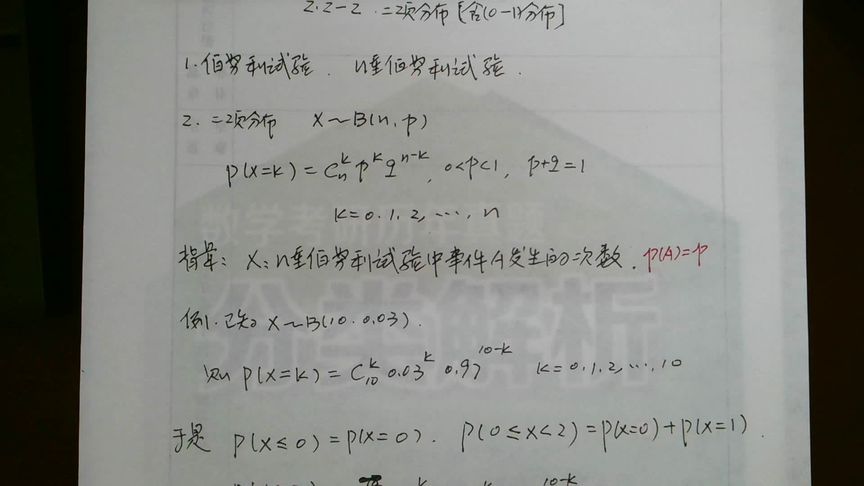 2.2-2 . 二项分布 [含(0-1)分布]
1. 伯努利试验 . n重伯努利试验 .
2. 二项分布 X~B(n, p)
P(X=k) = C_n^k p^k q^{n-k}, 0<p<1, p+q=1
k=0.1.2, ..., n
背景: X: n重伯努利试验中事件A发生的次数. P(A)=p
例1. 已知 X~B(10. 0.03).
则 P(X=k) = C_{10}^k 0.03^k 0.97^{10-k} k=0.1.2, ..., 10
于是 P(X≤0)=P(X=0). P(0≤X<2)=P(X=0)+P(X=1).
数学考研历年真题
分类解析